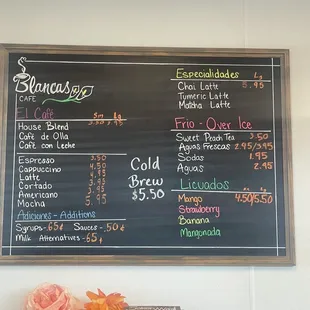 Blancas
CAFE
El Café Sm Lg
House Blend 3.50 3.95
Café de Olla
Café con Leche
Espresso 3.50
Cappuccino 4.50
Latte 4.95
Cortado 3.95
Americano 3.95
Mocha 5.95
Adiciones - Additions
Syrups - .65¢ Sauces - .50¢
Milk Alternatives - .65¢
Cold
Brew
$5.50
Especialidades Lg
Chai Latte 5.95
Tumeric Latte
Matcha Latte
Frio - Over Ice
Sweet Peach Tea 3.50
Aguas Frescas 2.95/3.95
Sodas 1.95
Aguas 2.95
Licuados
Mango 4.50/5.50
Strawberry
Banana
Mangonada